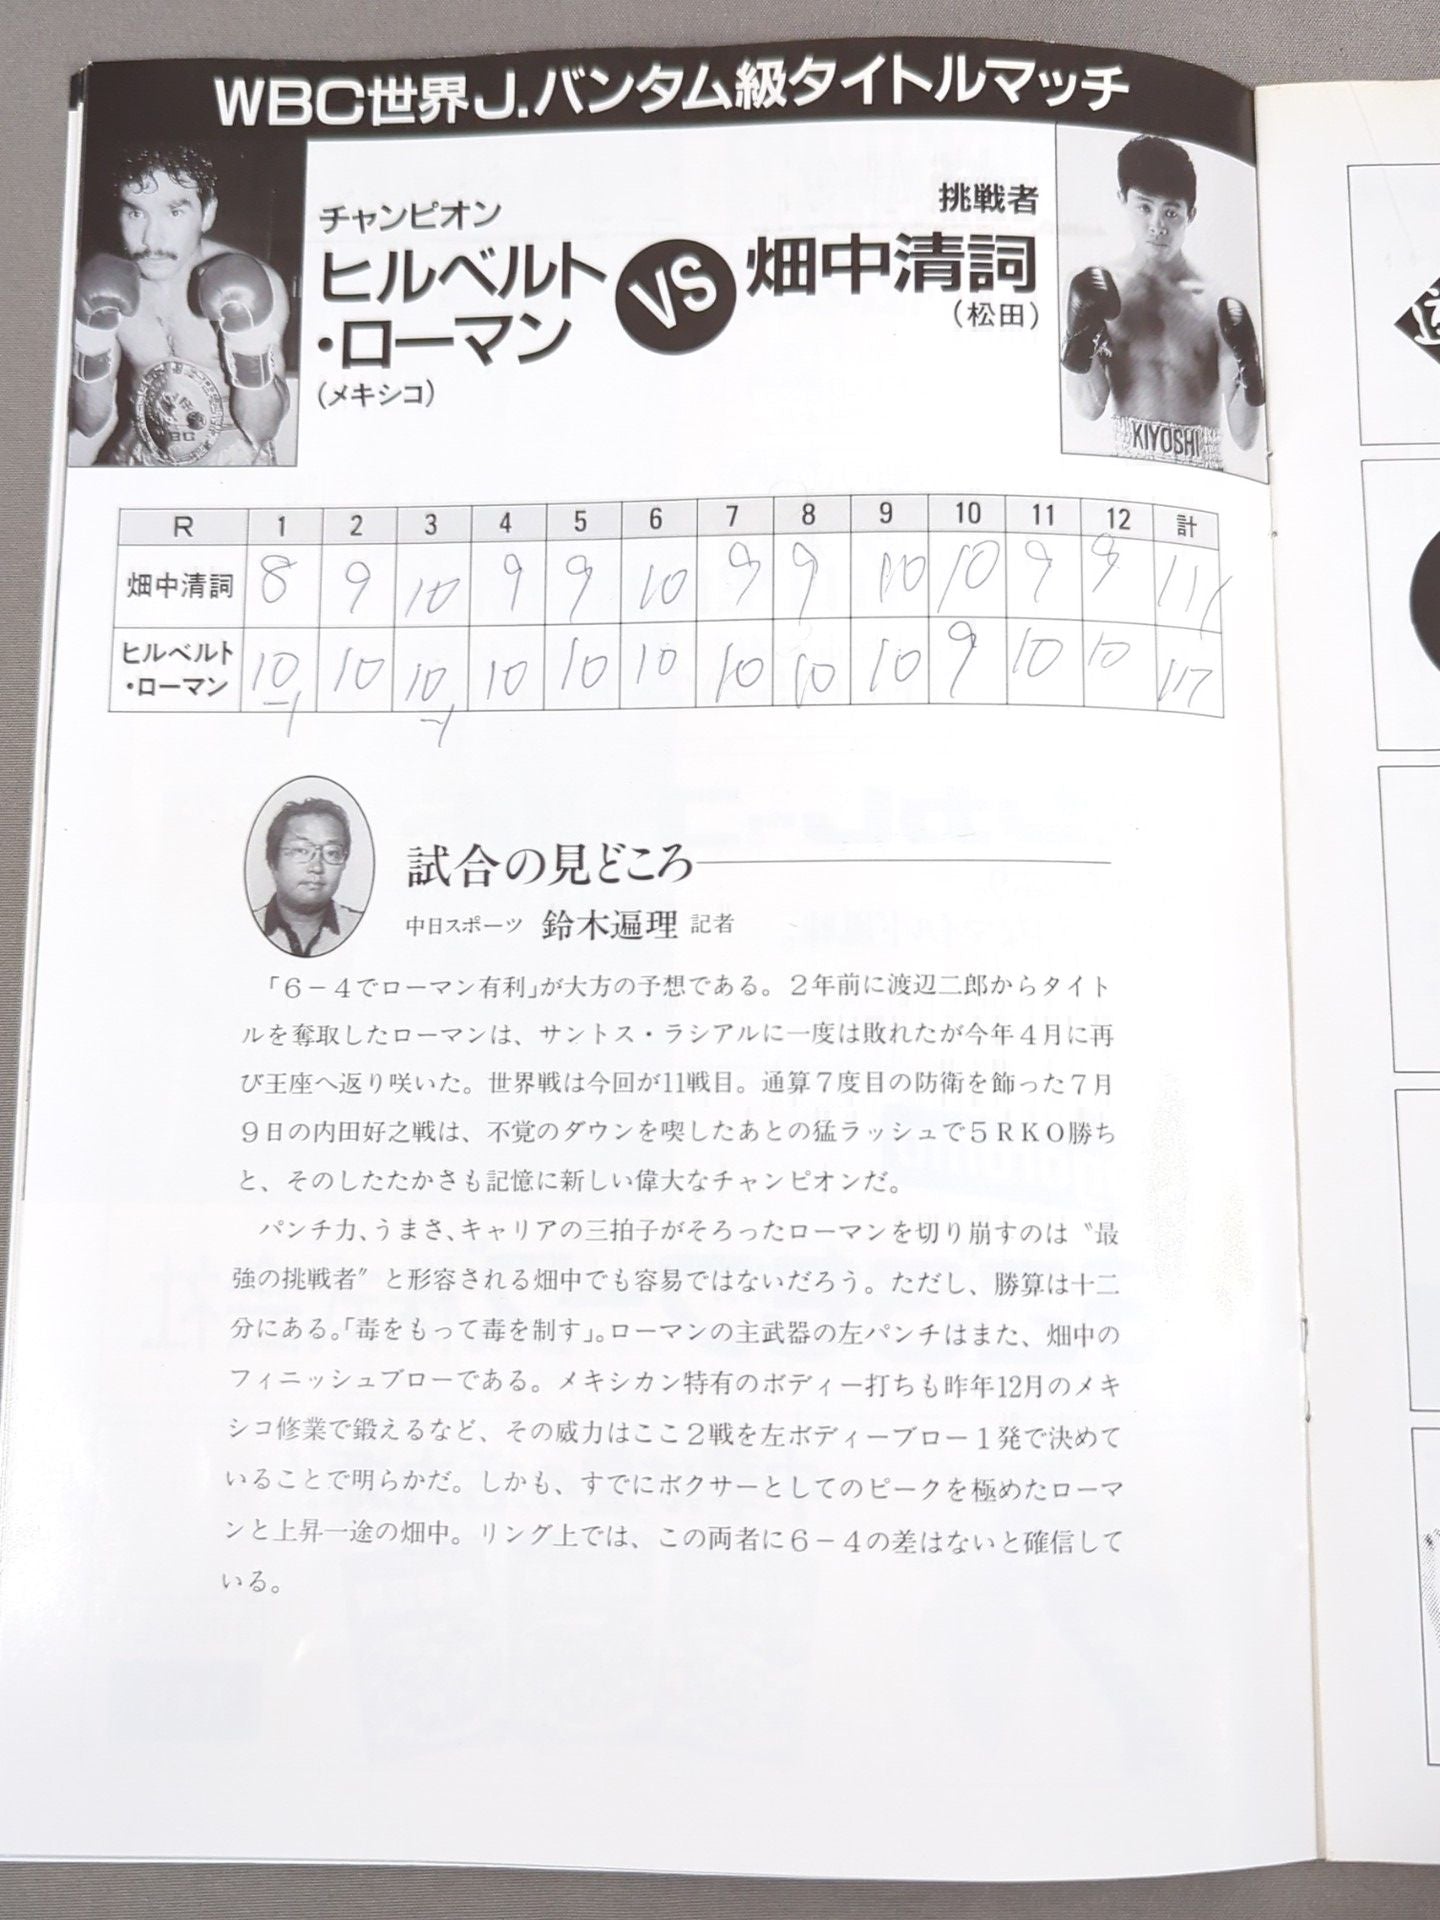 WBC世界J.バンタム級タイトルマッチ
チャンピオン
ヒルベルト
・ローマン
(メキシコ)
VS
挑戦者
畑中清詞
(松田)
KIYOSHI
R 1 2 3 4 5 6 7 8 9 10 11 12 計
畑中清詞 8 9 10 9 9 10 9 9 10 10 9 9 111
ヒルベルト・ローマン 10 10 10 10 10 10 10 10 10 9 10 10 117
-1 -1
試合の見どころ
中日スポーツ 鈴木遍理 記者
「6－4でローマン有利」が大方の予想である。2年前に渡辺二郎からタイト
ルを奪取したローマンは、サントス・ラシアルに一度は敗れたが今年4月に再
び王座へ返り咲いた。世界戦は今回が11戦目。通算7度目の防衛を飾った7月
9日の内田好之戦は、不覚のダウンを喫したあとの猛ラッシュで5RKO勝ち
と、そのしたたかさも記憶に新しい偉大なチャンピオンだ。
パンチ力、うまさ、キャリアの三拍子がそろったローマンを切り崩すのは〝最
強の挑戦者〟と形容される畑中でも容易ではないだろう。ただし、勝算は十二
分にある。「毒をもって毒を制す」。ローマンの主武器の左パンチはまた、畑中の
フィニッシュブローである。メキシカン特有のボディー打ちも昨年12月のメキ
シコ修業で鍛えるなど、その威力はここ2戦を左ボディーブロー1発で決めて
いることで明らかだ。しかも、すでにボクサーとしてのピークを極めたローマ
ンと上昇一途の畑中。リング上では、この両者に6－4の差はないと確信して
いる。